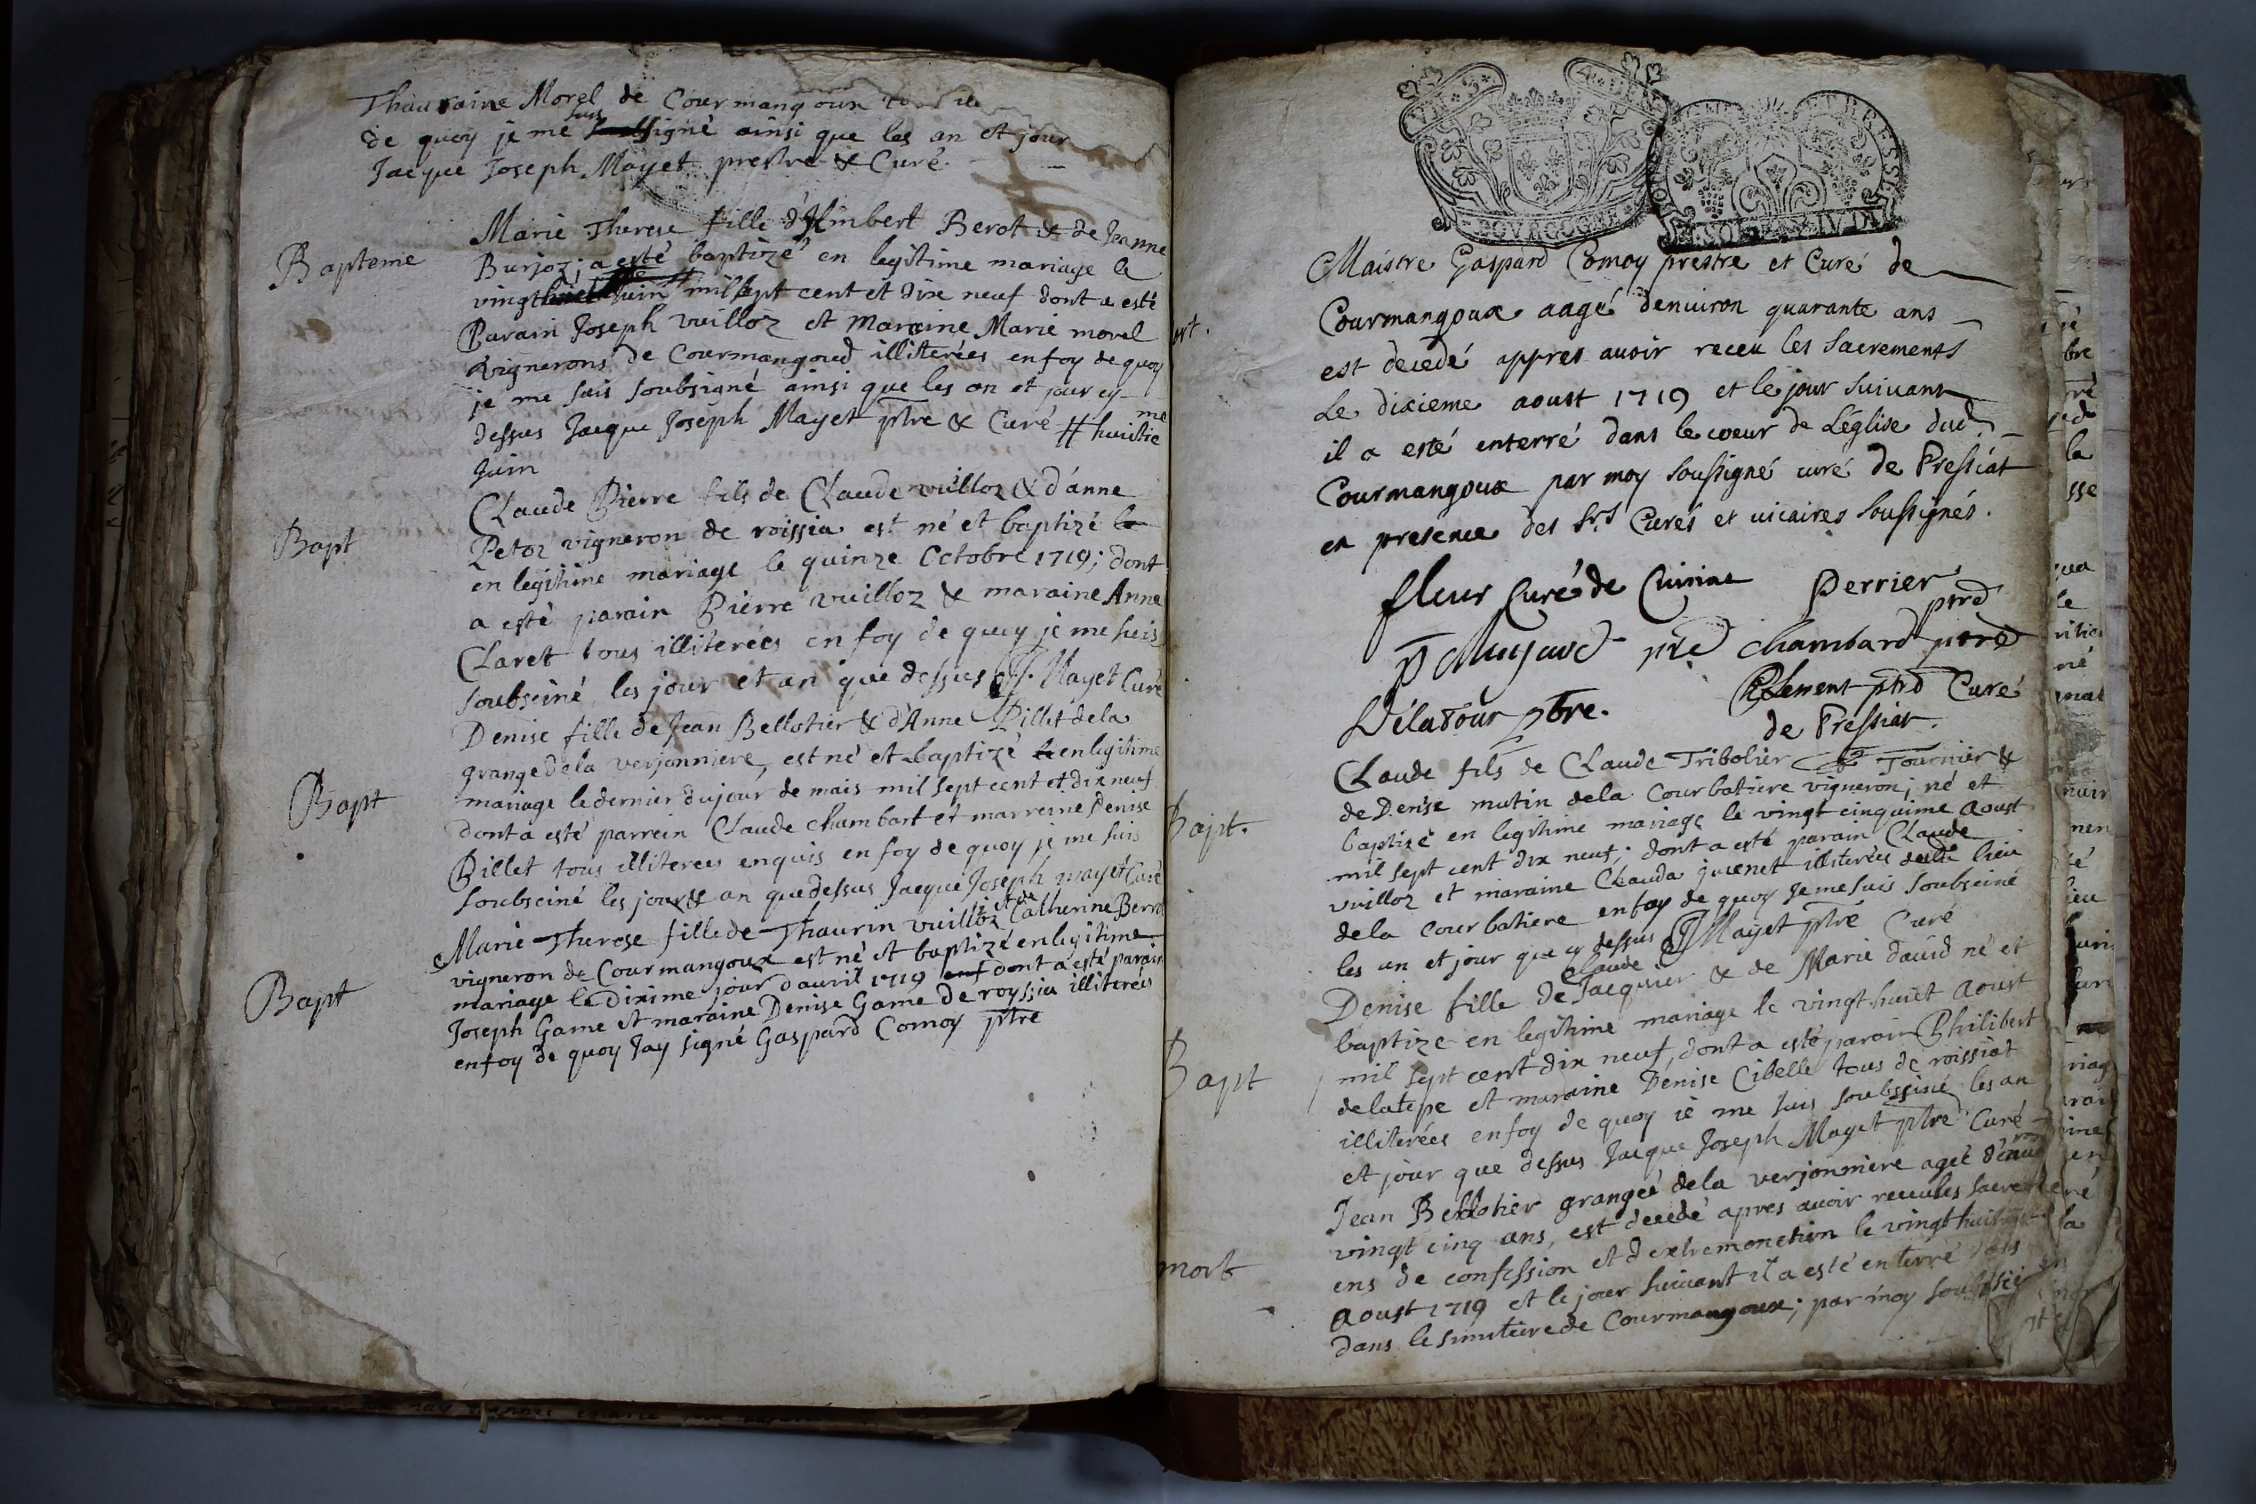 Thauraine Morel de Courmangoux
de quoy je me suis signé ainsi que les an et jour
Jacque Joseph Mayet prestre & Curé.
Bapteme
Marie Therese fille d'Himbert Berot & de Jeanne
Burjoz; a esté baptizé en legitime mariage le
vingt huict juin mil sept cent et dix neuf dont a esté
Parain Joseph vuilloz et maraine Marie morel
vignerons de Courmangoud illiterées en foy de quoy
je me suis soubsigné ainsi que les an et jour cy
dessus Jacque Joseph Mayet ptre & Curé # huitieme
Juin
Bapt
Claude Pierre fils de Claude vuilloz & d'anne
Petoz vigneron de roissia est né et baptizé le
en legitime mariage le quinze Octobre 1719; dont
a esté parain Pierre vuilloz & maraine Anne
Claret tous illiterées en foy de quoy je me suis
soubseiné les jour et an que dessus JJ. Mayet Curé
Bapt
Denise fille de Jean Bellotier & d'Anne Pillet de la
grange de la verjonniere, est né et baptizé le en legitime
mariage le dernier du jour de mais mil sept cent et dix neuf
dont a esté parrein Claude Chambart et marreine Denise
Billet tous illiterees enquis en foy de quoy je me suis
soubseiné les jour & an que dessus Jacque Joseph mayet Curé
Bapt
Marie Therese fille de Thaurin vuilloz et de Catherine Berrot
vigneron de Courmangoux est né et baptizé en legitime
mariage le Dixime jour d'auril 1719 dont a esté parain
Joseph Game et maraine Denise Game de royssia illiterées
en foy de quoy Jay signé Gaspard Comoy ptre
BOVRGOGNE
ET BRESSE
ort.
Maistre Gaspard Comoy prestre et Curé de
Courmangoux aagé denuiron quarante ans
est decedé appres auoir receu les Sacrements
Le dixieme aoust 1719 et le jour suiuant
il a esté enterré dans le coeur de L'église dud.
Courmangoux par moy soussigné curé de Pressiat
en presence des Srs Curés et uicaires soussignés.
fleur Curé de Cuisiat Perrier ptrd
ptre chambard ptrd
Délatour ptre. Clement ptrd Curé
de Pressiat.
Bapt.
Claude fils de Claude Tribolier Tournier &
de Denise mutin de la Courbatiere vigneron; né et
baptizé en legitime mariage le vingt cinquime Aoust
mil sept cent dix neuf; dont a esté parain Claude
vuilloz et maraine Clauda guenet illiterées lieu
de la courbatiere en foy de quoy Je me suis soubseiné
les an et jour que cy dessus JJ Mayet ptre Curé
Bapt
Denise fille de Claude Jacquier & de Marie dauid né et
baptize en legitime mariage le vingt huict Aoust
mil sept cent dix neuf, dont a esté parain Philibert
delatepe et maraine Dénise Cibelle tous de roissiat
illiterées en foy de quoy ie me suis soubsseiné les an
et jour que dessus Jacque Joseph Mayet ptre Curé
mort
Jean Bellotier granger de la verjonniere agéé d'enuiron
vingt cinq ans, est decedé apres auoir receu les sacrem
ens de confession et d'extremonction le vingt huitieme
Aoust 1719 et le jour suiuant il a esté enterré dans
dans le simitiere de Courmangoux; par moy